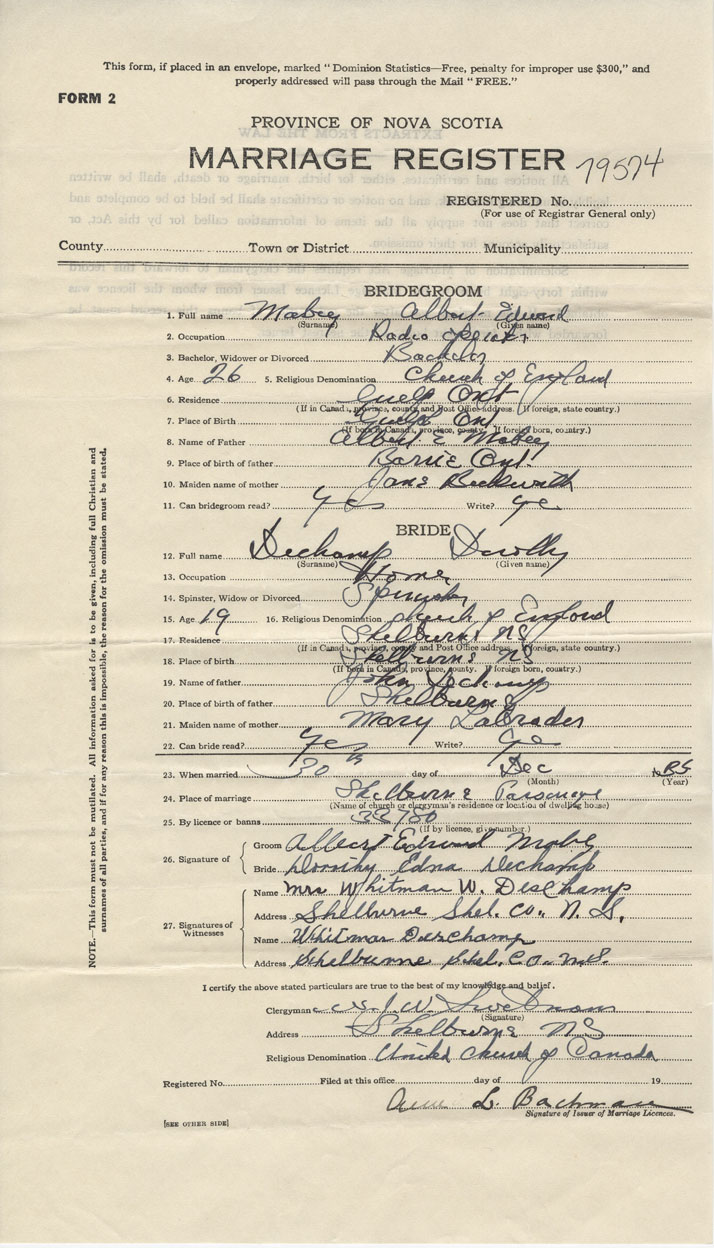 This form, if placed in an envelope, marked "Dominion Statistics—Free, penalty for improper use $300," and
properly addressed will pass through the Mail "FREE."
FORM 2
PROVINCE OF NOVA SCOTIA
MARRIAGE REGISTER 79574
REGISTERED No.
(For use of Registrar General only)
County Town or District Municipality
BRIDEGROOM
1. Full name Mabey Albert Edward
(Surname) (Given name)
2. Occupation Radio
3. Bachelor, Widower or Divorced Bachelor
4. Age 26 5. Religious Denomination Church of England
6. Residence Guelp Ont
(If in Canada, province, county and Post Office address. If foreign, state country.)
7. Place of Birth Guelph Ont
(If born in Canada, province, county. If foreign born, country.)
8. Name of Father Albert E Mabey
9. Place of birth of father Barrie Ont.
10. Maiden name of mother Jane Beckwith
11. Can bridegroom read? yes Write? ye
BRIDE
12. Full name Dechamp Dorothy
(Surname) (Given name)
13. Occupation Home
14. Spinster, Widow or Divorced Spinster
15. Age 19 16. Religious Denomination church of England
17. Residence Shelburne NS
(If in Canada, province, county and Post Office address. If foreign, state country.)
18. Place of birth Shelburne NS
(If born in Canada, province, county. If foreign born, country.)
19. Name of father John Dechamp
20. Place of birth of father Shelburne
21. Maiden name of mother Mary Labrador
22. Can bride read? yes Write? ye
23. When married 30th day of Dec
(Month) (Year)
24. Place of marriage Shelburne Parsonage
(Name of church or clergyman's residence or location of dwelling house)
25. By licence or banns 33780
(If by licence, give number.)
26. Signature of
Groom Albert Edward Mabey
Bride Dorothy Edna Dechamp
27. Signatures of Witnesses
Name Mrs Whitman W. Deschamp
Address Shelburne Shel. Co., N. S.
Name Whitman Deschamp
Address Shelburne Shel. Co. N.S.
I certify the above stated particulars are true to the best of my knowledge and belief.
Clergyman
(Signature)
Address Shelburne NS
Religious Denomination United Church of Canada
Registered No. Filed at this office day of 19
L. Bachman
Signature of Issuer of Marriage Licences.
[SEE OTHER SIDE]
NOTE.—This form must not be mutilated. All information asked for is to be given, including full Christian and
surnames of all parties, and if for any reason this is impossible, the reason for the omission must be stated.